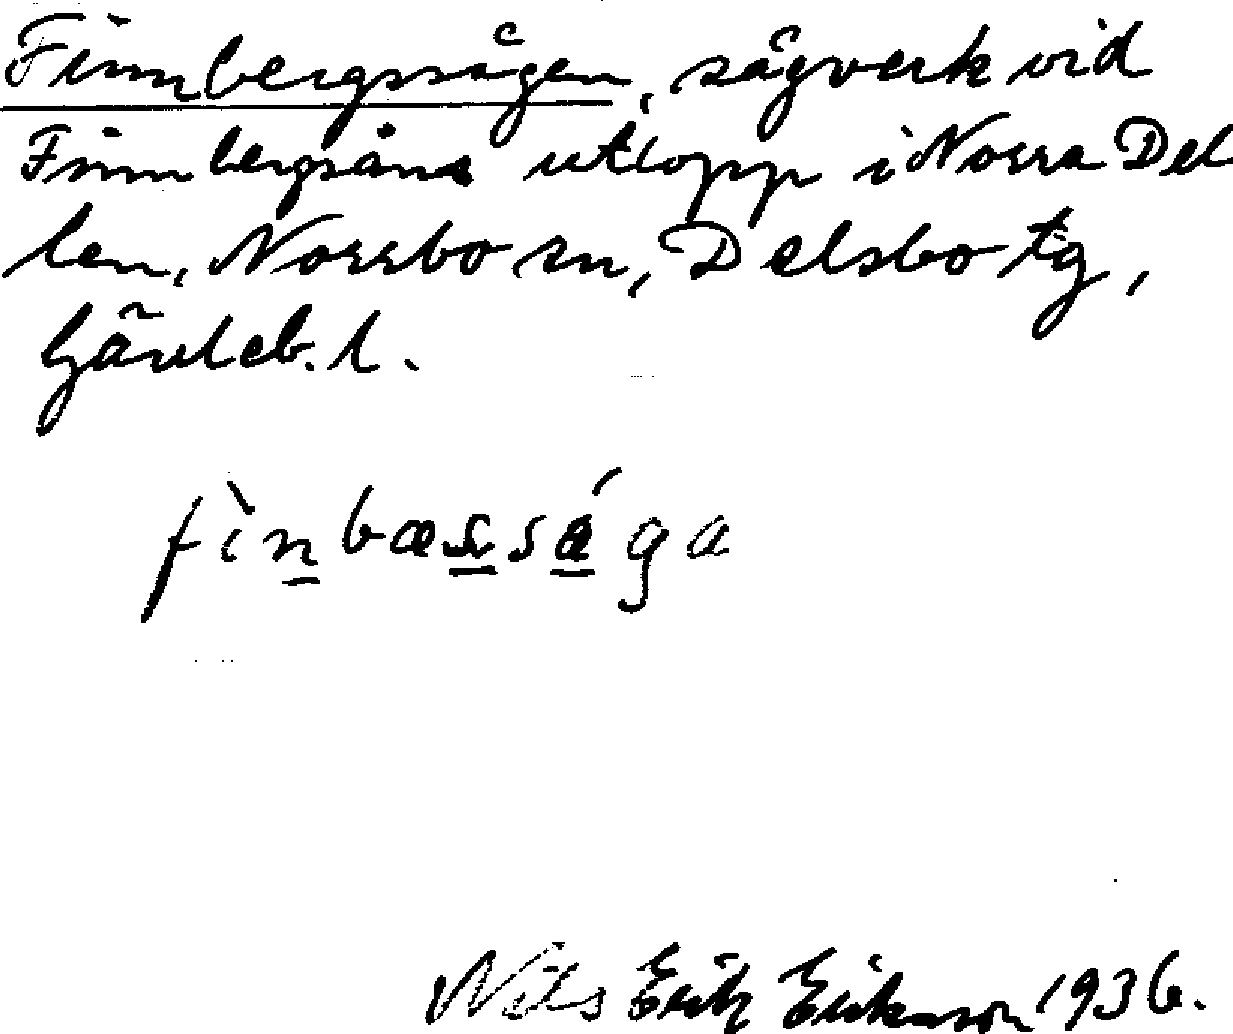 Finnbergssågen, sågverk vid
Finnbergsåns utlopp i Norra Del
len, Norrbo sn, Delsbo tg,
Gävleb. l.
fìnbæssága
Nils Erik Erikson 1936.